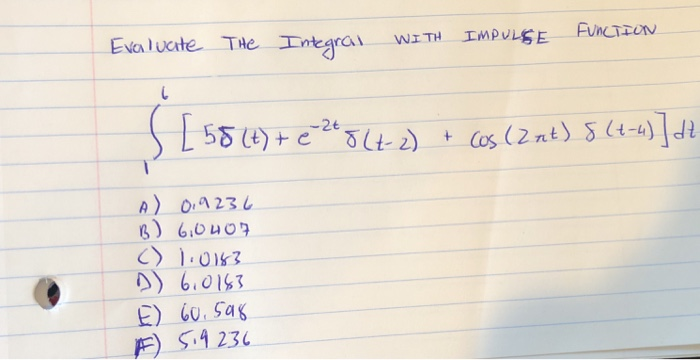 Evaluate THE Integral WITH IMPULSE FUNCTION
6
∫ [5δ(t) + e^-2t δ(t-2) + cos(2πt) δ(t-4)] dt
1
A) 0.9236
B) 6.0407
C) 1.0183
D) 6.0183
E) 60.598
F) 5.9236